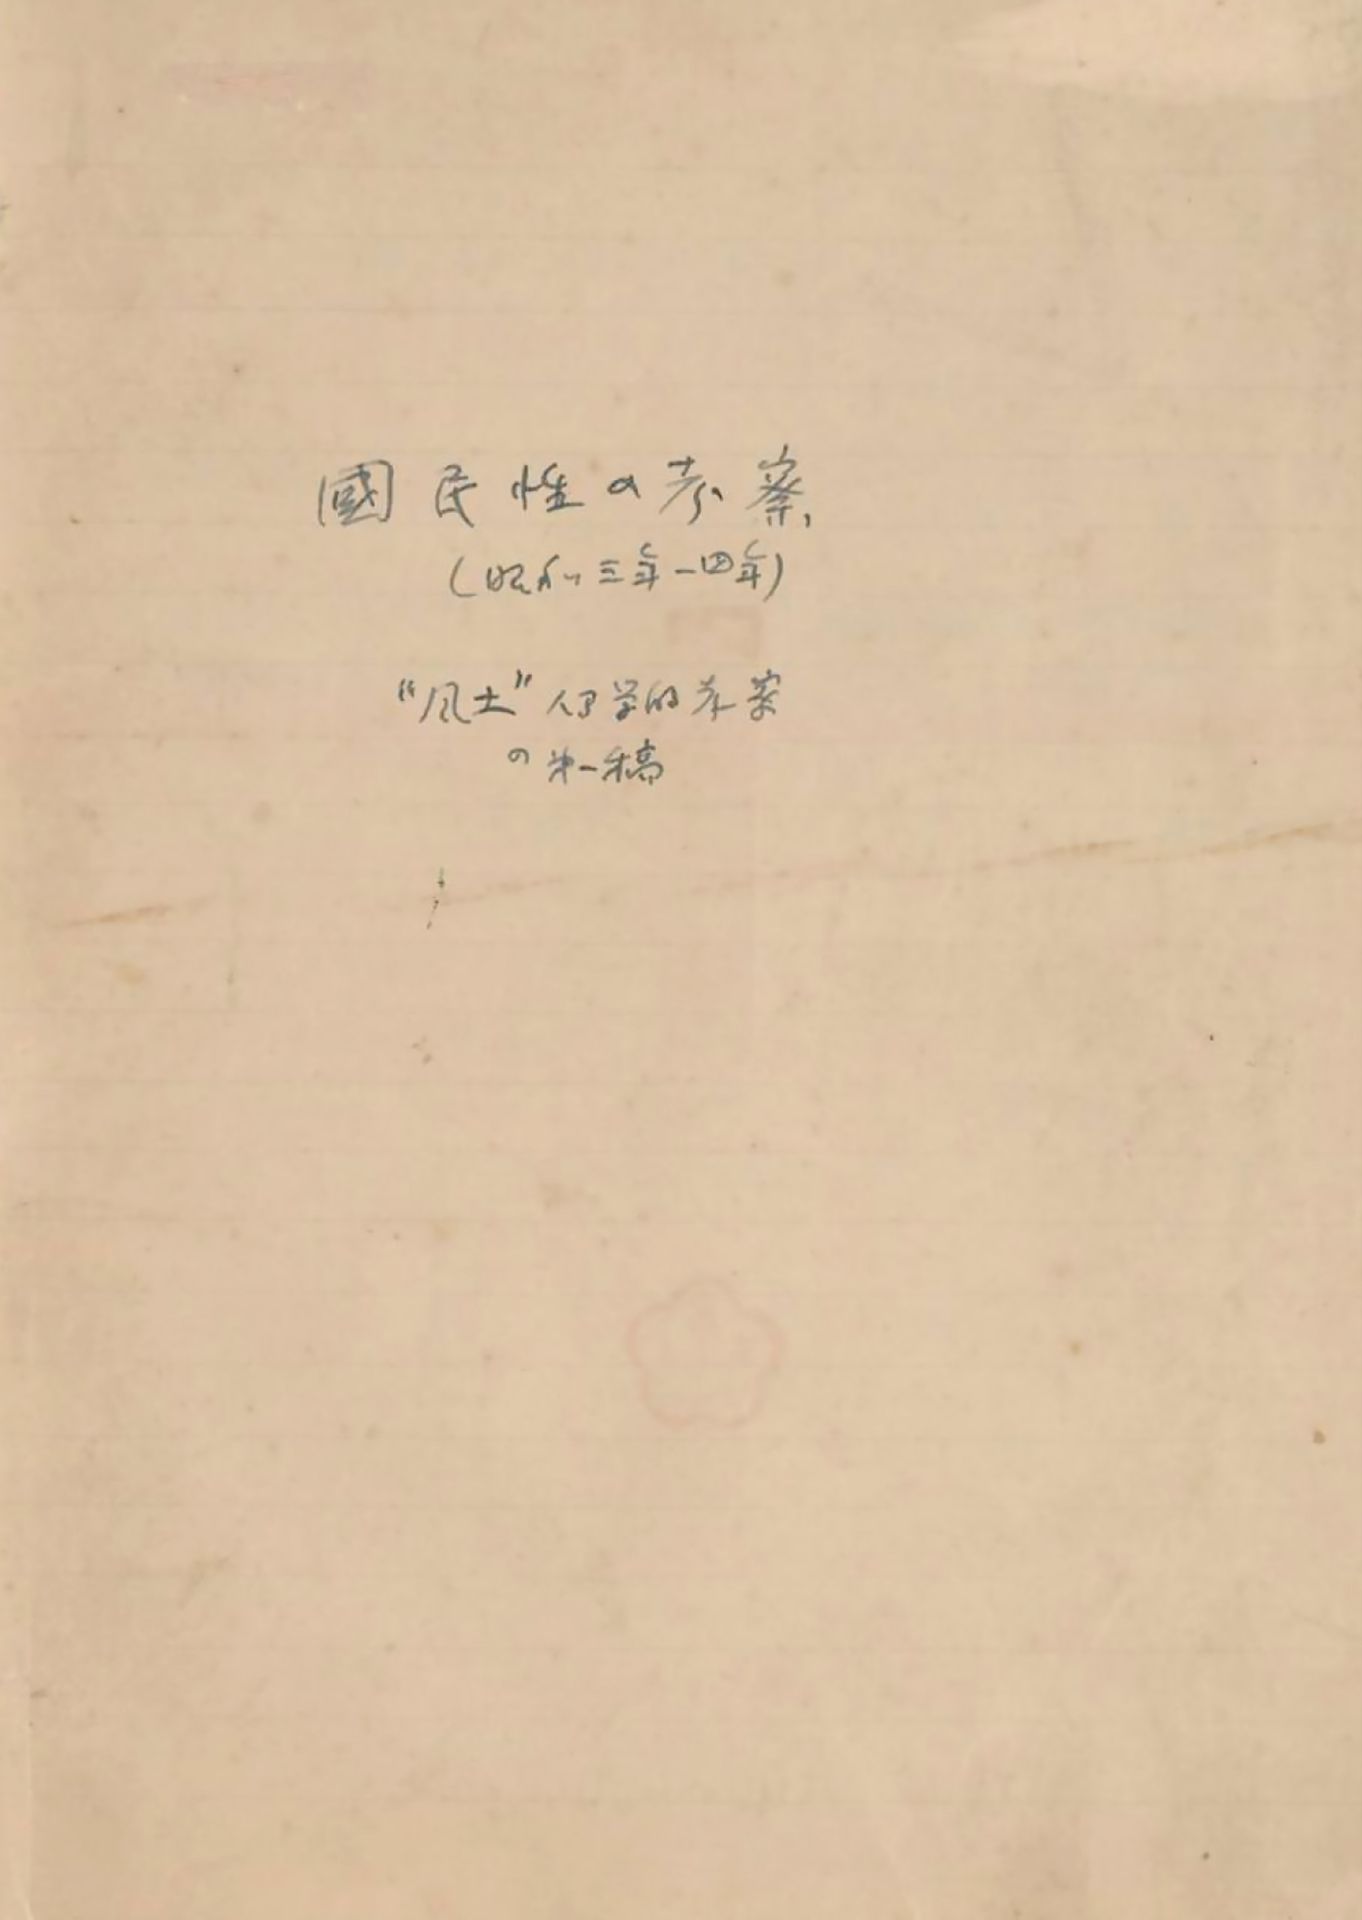 國民性の考察
(昭和三年—四年)
“風土”人間学的考察
の第一稿